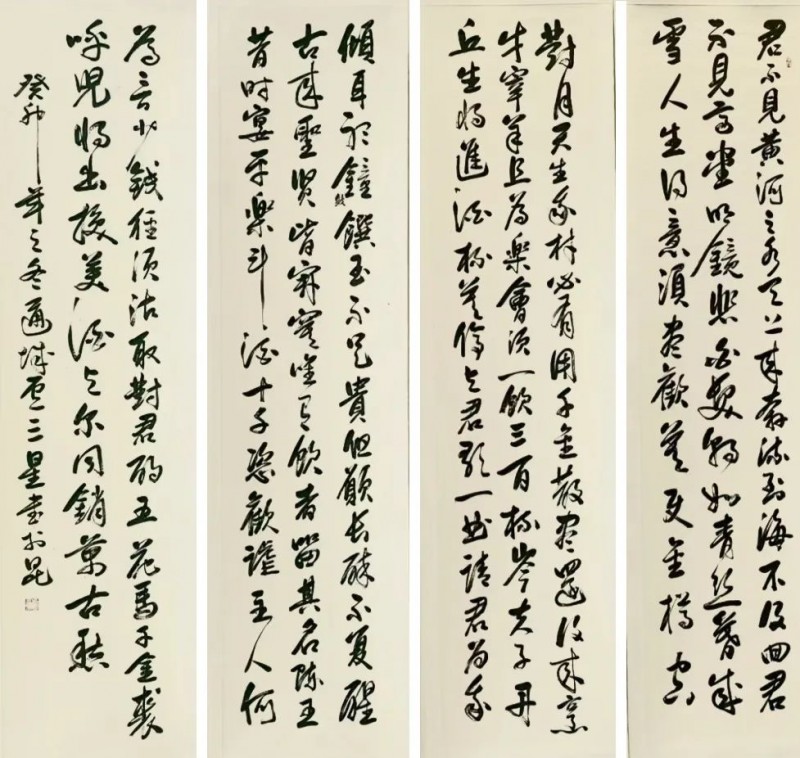 君不見黃河之水天上來奔流到海不復回君
不見高堂明鏡悲白髮朝如青絲暮成
雪人生得意須盡歡莫使金樽空
對月天生我材必有用千金散盡還復來烹
牛宰羊且為樂會須一飲三百杯岑夫子丹
丘生將進酒杯莫停與君歌一曲請君為我
傾耳聽鐘鼓饌玉不足貴但願長醉不復醒
古來聖賢皆寂寞唯有飲者留其名陳王
昔時宴平樂斗酒十千恣歡謔主人何
為言少錢徑須沽取對君酌五花馬千金裘
呼兒將出換美酒與爾同銷萬古愁
癸卯年之冬三星書於昆